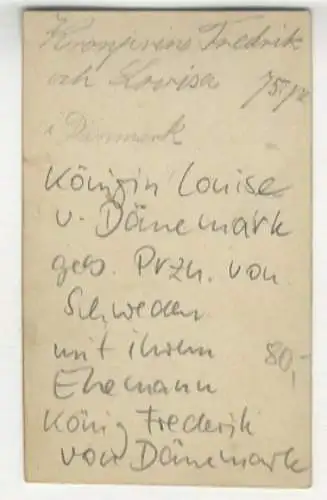 Kronprins Fredrik
och Lovisa
i Danmark
Königin Louise
v. Dänemark
geb. Przn. von
Schweden
mit ihrem 80,-
Ehemann
König Frederik
von Dänemark